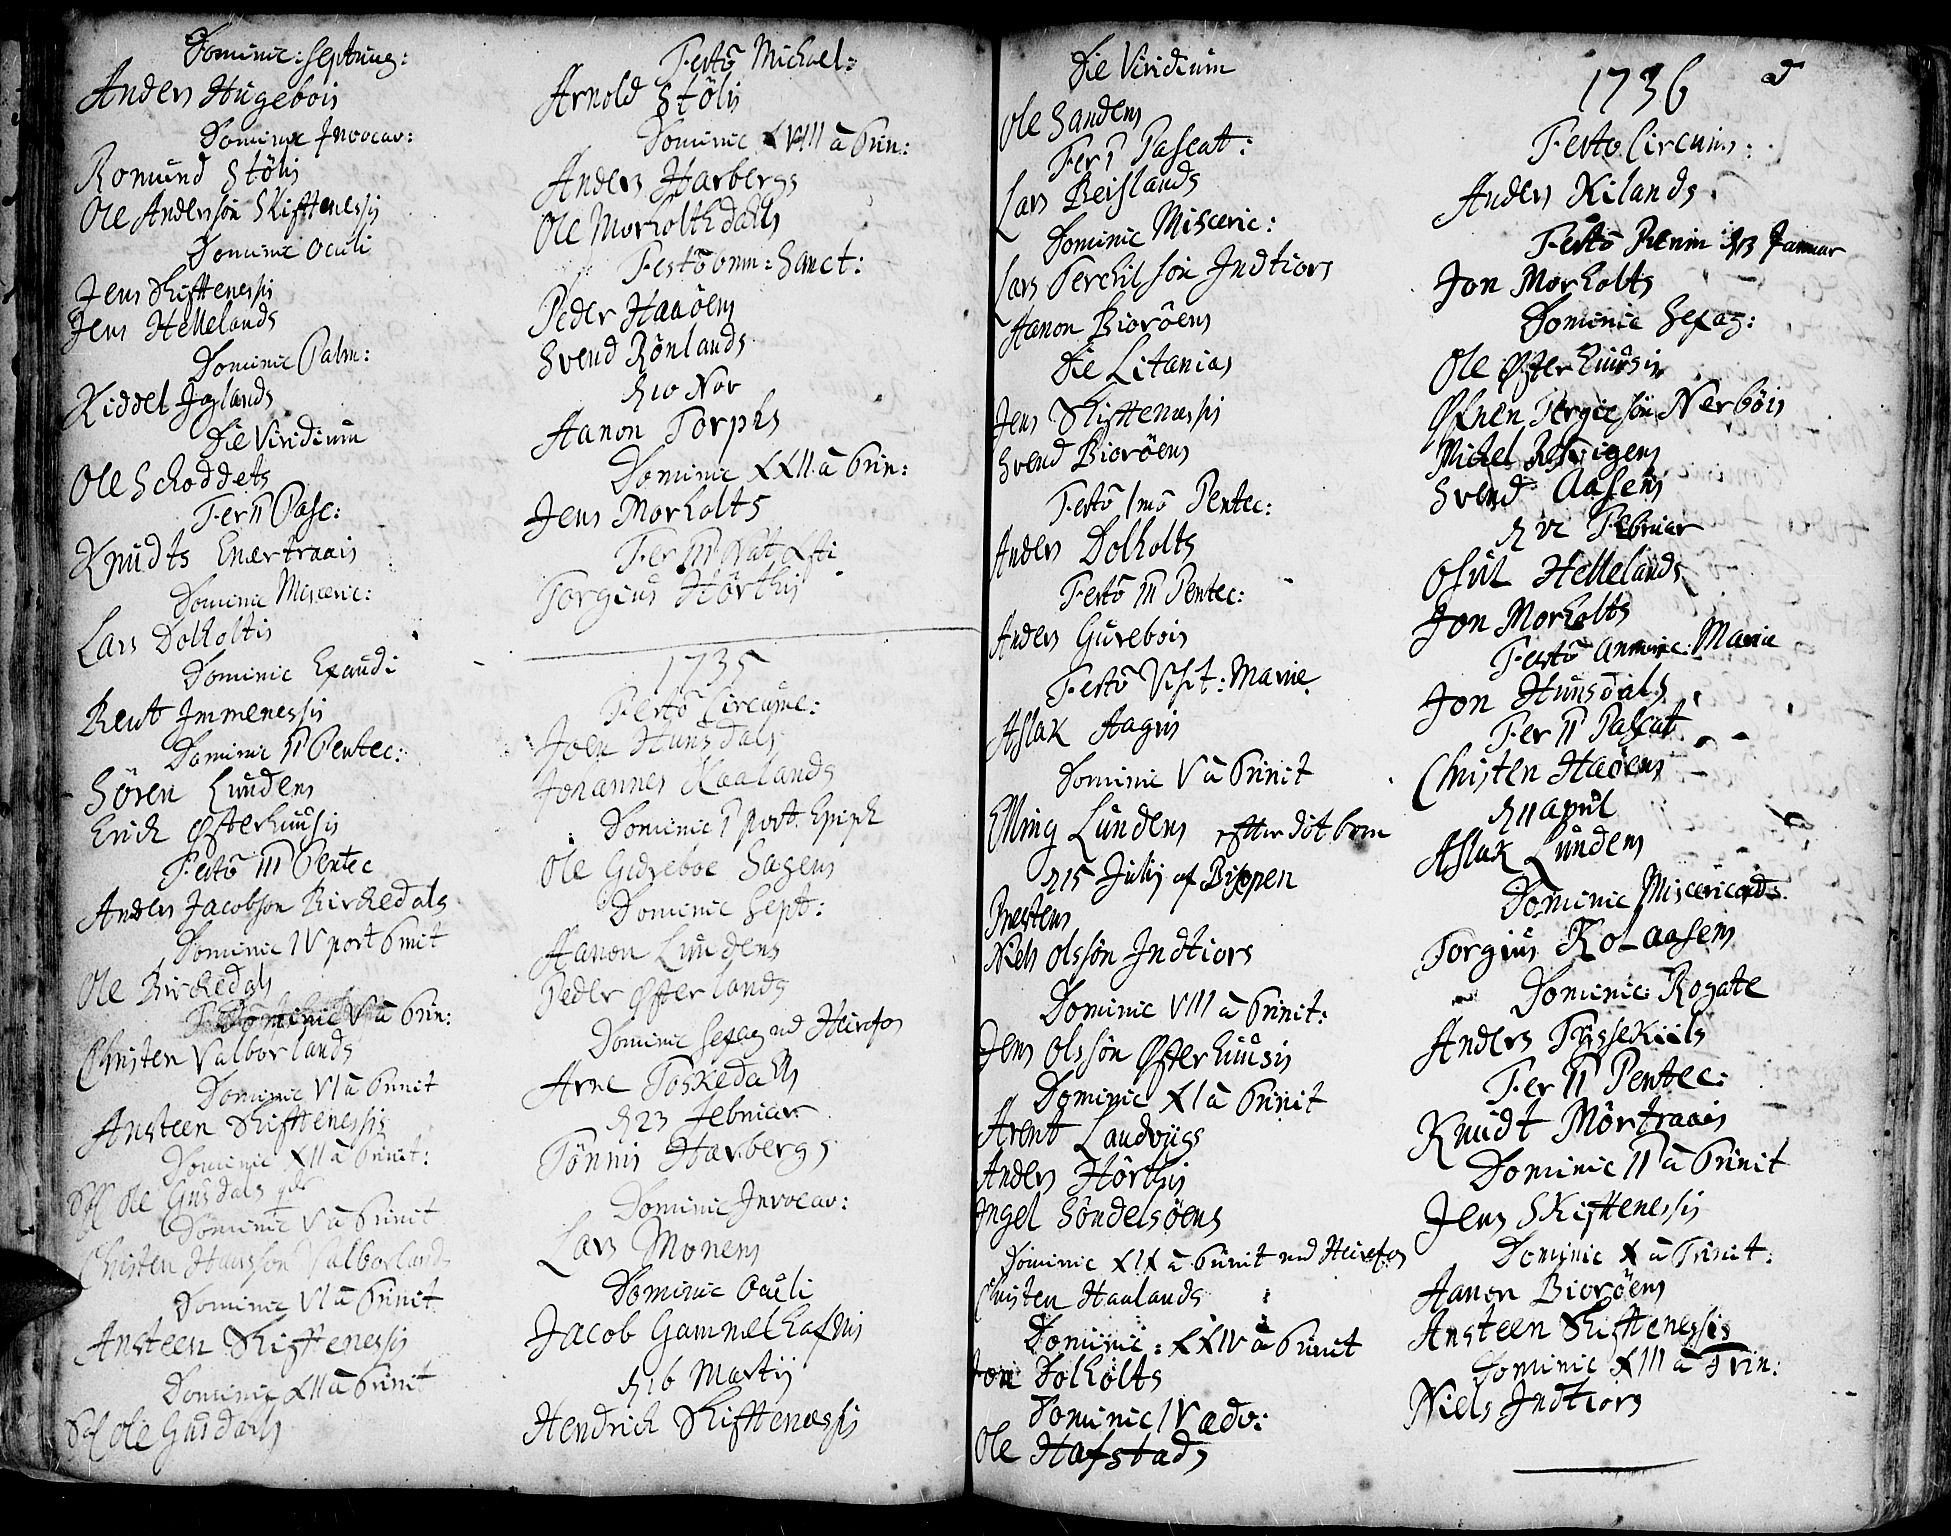 Dominic: Septuag:
Anders Hugebois
Dominic Invocav:
Romund Stölis
Ole Anderssön Skifftenessis
Dominic Oculi
Jens Skifftenessis
Jens Hellelands
Dominic Palm:
Kiddel Igelands
Die Viridium
Ole Schoddets
Fer II Pasc:
Knudts Enærtraais
Dominic Misceric:
Lars Dolholtis
Dominic Exaudi
Bent Immenessis
Dominic II Pentec:
Sören Lundens
Erich Øfterhuusis
Festo III Pentec
Anders Jacobson Birchedals
Dominic IV post Trinit
Ole Birchedals
Dominic V a Trin:
Christen Valborlands
Dominic VI a Trinit
Ansteen Skifftenessis
Dominic XII a Trinit:
Ole Gusdals
Dominic V a Trinit
Christen Hansson Valborlands
Dominic VI a Trinit
Ansteen Skifftenessis
Dominic XII a Trinit
Ole Gusdahls
Festo Michael:
Arnold Stölis
Dominic XVIII a Trin:
Anders Harbergs
Ole Morholthdahls
Festo omn: Sanct:
Peder Haaöens
Svend Rönlands
d 10 Nov
Aanon Torphs
Dominic XXII a Trin:
Jens Morholts
Fer III Nat Xti
Torgius Hörthis
1735
Festo Circume:
Joen Hunsdals
Johannes Kaalands
Dominic I post Epiph
Ole Gidreboe Hagens
Dominic Sept:
Aanon Lundens
Peder Øfterlands
Dominic Sexag ved Heirefos
Arne Toskedahls
d 23 Februar
Tönnis Harbergs
Dominic Invocav:
Lars Monens
Dominic Oculi
Jacob Gammelhafnis
d 16 Martij
Hendrich Skifftenæssis
Die Viridium
Ole Sandens
Fer I Pascat:
Lars Beislands
Dominic Misceric:
Lars Terchilsön Indtiors
Aanon Bioröens
Die Litanias
Jens Skifftenæssis
Svend Bioröens
Festo Imo Pentec:
Anders Dolholts
Festo III Pentec:
Anders Gurebois
Festo Visit: Marie
Aslak Aagris
Dominic V a Trinit
Elling Lundens
d 15 Julij af Bispen
Prestens
Niels Olssön Indtiors
Dominic VIII a Trinit:
Jens Olssön Øfterhuusis
Dominic XI a Trinit
Arent Landvigs
Anders Hörthis
Ingel Söndelsöens
Dominic XIX a Trinit ved Heirefos
Christen Haalands
Dominic: XXIV a Trinit
Jon Dolholts
Dominic IV Adv:
Ole Hafstads
1736
Festo Circum:
Anders Kilands
Festo Remin Januar
Jon Morholts
Dominic Sexag:
Ole Øfterhuusis
Øfnen Tergiesön Nerböis
Michel
Svend Aasens
Februar
Osul Hellelands
Jon Morholts
Festo Anminc: Maria
Jon Hunsdals
Fer II Pascat
Christen Haaöens
d 11 April
Aslak Lundens
Dominic Misericords
Torgius Kolaasens
Dominic Rogate
Anders Tyssekiils
Fer II Pentec:
Knudt Mörtraais
Dominic II a Trinit
Jens Skifftenessis
Dominic X a Trinit:
Aanon Bioröens
Ansteen Skifftenessis
Dominic XIII a Trin:
Niels Indtiors